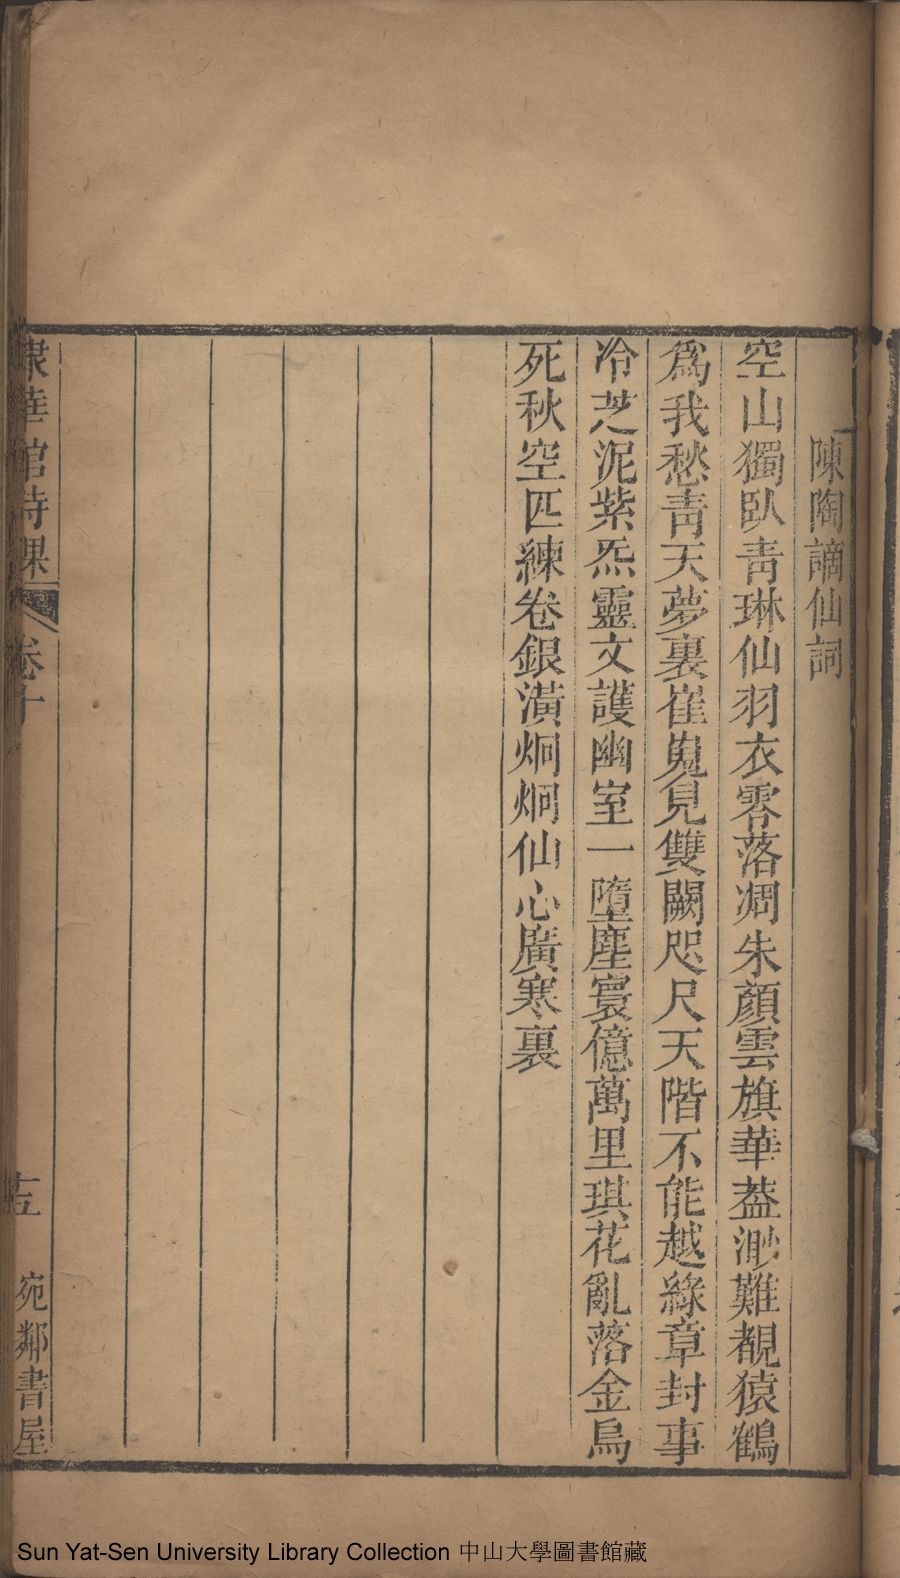 陳陶謫仙詞
空山獨臥青琳仙羽衣零落凋朱顏雲旗華葢渺難覩猿鶴
爲我愁青天夢裏崔嵬見雙闕咫尺天階不能越綠章封事
冷芝泥紫炁靈文護幽室一墮塵寰億萬里琪花亂落金烏
死秋空匹練卷銀潢炯炯仙心廣寒裏
棣華館詩課
卷十
十五
宛鄰書屋
Sun Yat-Sen University Library Collection 中山大學圖書館藏